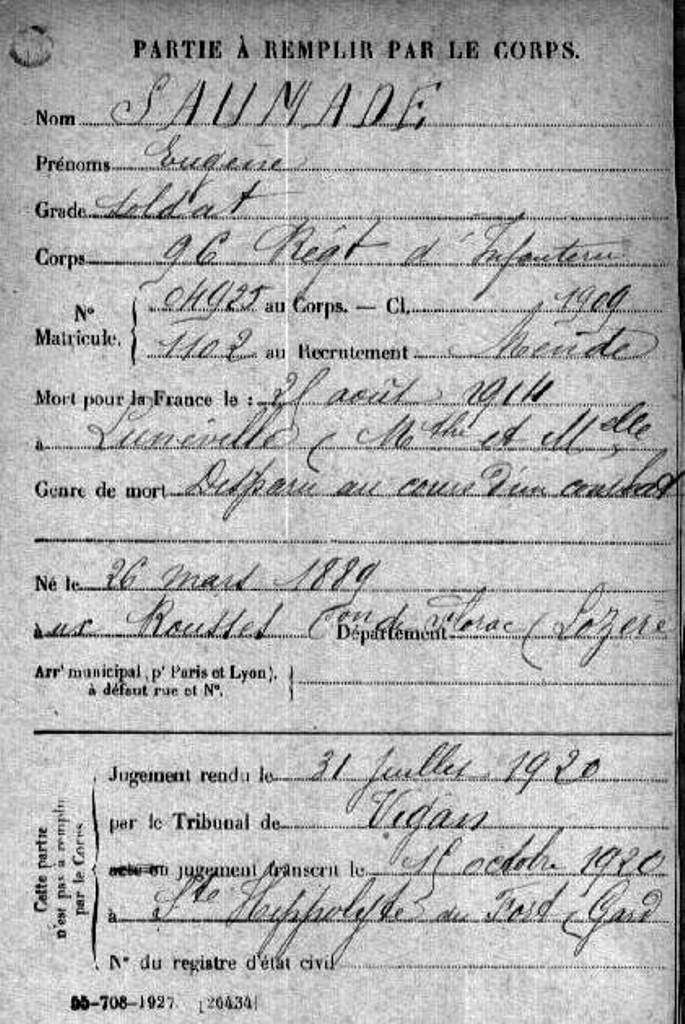 PARTIE À REMPLIR PAR LE CORPS.
Nom SAUMADE
Prénoms Eugène
Grade Soldat
Corps 96 Régt d'Infanterie
N° Matricule. 04925 au Corps. — Cl. 1909
1102 au Recrutement Mende
Mort pour la France le : 25 août 1914
à Lunéville (Mthe et Melle
Genre de mort Disparu au cours d'un combat
Né le 26 mars 1889
aux Rousses Con de Florac Département (Lozère
Arrt municipal (pr Paris et Lyon),
à défaut rue et N°.
Cette partie
n'est pas à remplir
par le Corps.
Jugement rendu le 31 Juillet 1920
par le Tribunal de Vigan
acte ou jugement transcrit le 15 octobre 1920
à Ste Hippolyte du Fort (Gard
N° du registre d'état civil
-708-1927. [26434]